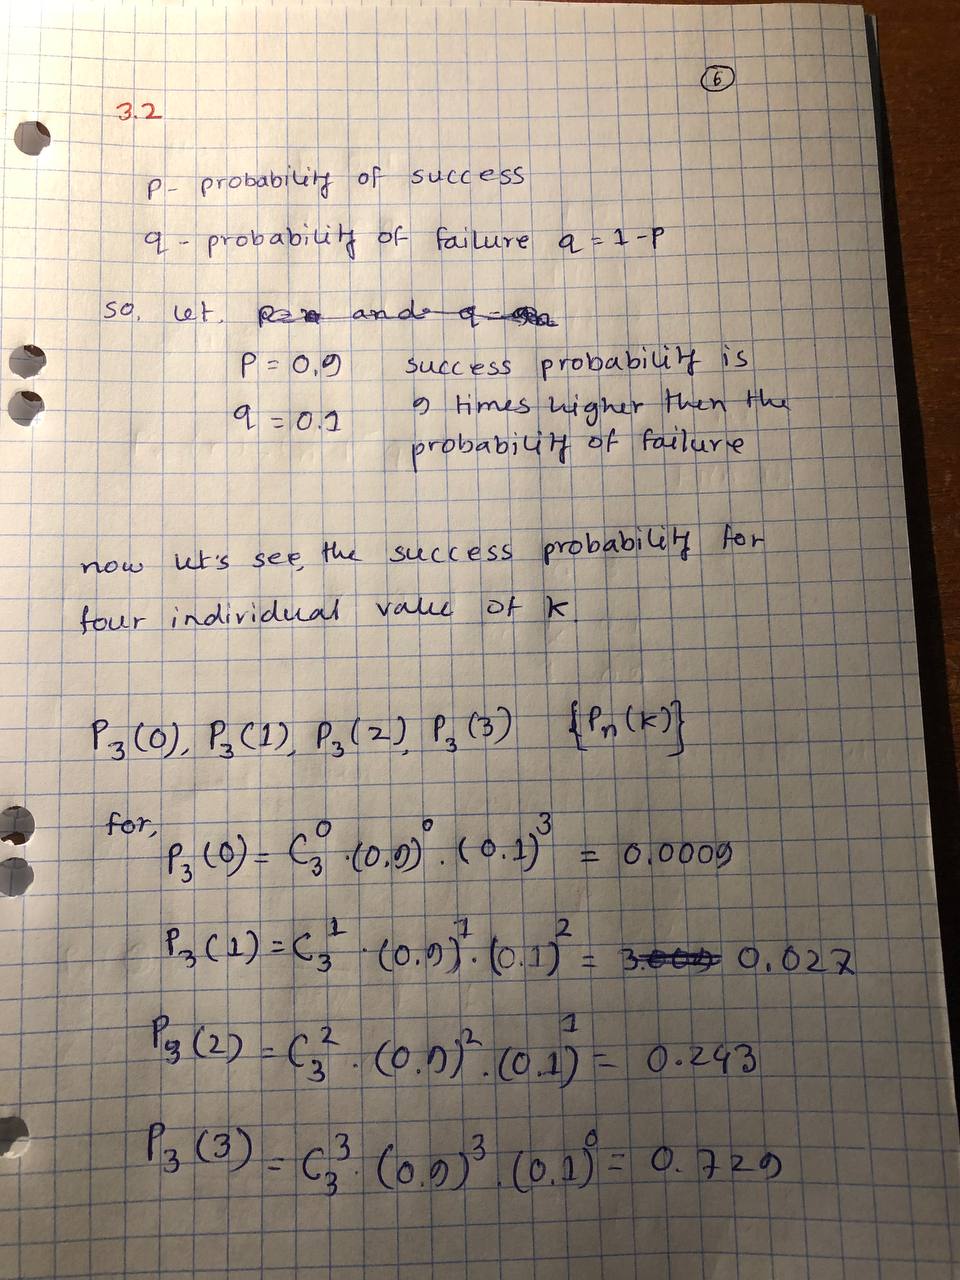 6
3.2
p - probability of success
q - probability of failure q = 1 - p
so, let, and q =
P = 0.9 success probability is
q = 0.1 9 times higher then the
probability of failure
now let's see, the success probability for
four individual value of k.
P₃(0), P₃(1), P₃(2), P₃(3) {Pₙ(k)}
for,
P₃(0) = C₃⁰ · (0.9)⁰ · (0.1)³ = 0.0009
P₃(1) = C₃¹ · (0.9)¹ · (0.1)² = 0.027
P₃(2) = C₃² · (0.9)² · (0.1)¹ = 0.243
P₃(3) = C₃³ · (0.9)³ · (0.1)⁰ = 0.729